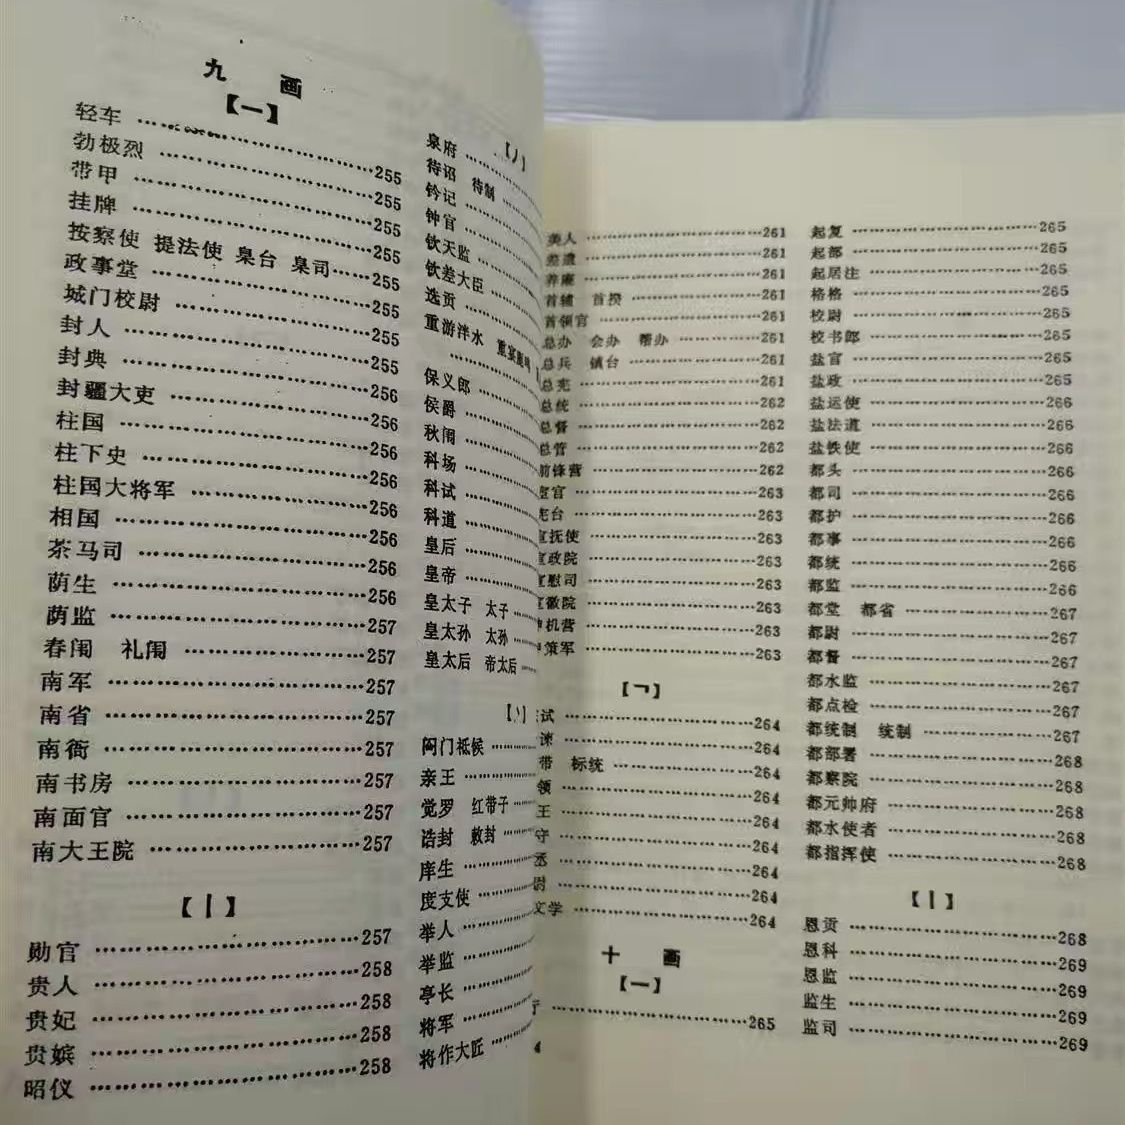 九 画
【一】
轻车 255
勃极烈 255
带甲 255
挂牌 255
按察使 提法使 臬台 臬司 255
政事堂 255
城门校尉 255
封人 255
封典 256
封疆大吏 256
柱国 256
柱下史 256
柱国大将军 256
相国 256
茶马司 256
荫生 256
荫监 257
春闱 礼闱 257
南军 257
南省 257
南衙 257
南书房 257
南面官 257
南大王院 257
【丨】
勋官 257
贵人 258
贵妃 258
贵嫔 258
昭仪 258
【丿】
泉府
待诏 待制
钤记
钟官
钦天监
钦差大臣
选贡
重游泮水
保义郎
侯爵
秋闱
科场
科试
科道
皇后
皇帝
皇太子 太子
皇太孙 太孙
皇太后 帝太后
【丶】
阁门祗候
亲王
觉罗 红带子
诰封 敕封
庠生
度支使
举人
举监
亭长
将军
将作大匠
美人 261
差遣 261
养廉 261
首辅 首揆 261
首领官 261
总办 会办 帮办 261
总兵 镇台 261
总宪 261
总统 262
总督 262
总管 262
前锋营 262
官 263
台 263
抚使 263
政院 263
慰司 263
徽院 263
机营 263
策军 263
【㇕】
试 264
谏 264
带 标统 264
领 264
王 264
守 264
丞 264
尉 264
文学 264
十 画
【一】
265
起复 265
起部 265
起居注 265
格格 265
校尉 265
校书郎 265
盐官 265
盐政 265
盐运使 266
盐法道 266
盐铁使 266
都头 266
都司 266
都护 266
都事 266
都统 266
都监 266
都堂 都省 267
都尉 267
都督 267
都水监 267
都点检 267
都统制 统制 267
都部署 268
都察院 268
都元帅府 268
都水使者 268
都指挥使 268
【丨】
恩贡 268
恩科 269
恩监 269
监生 269
监司 269